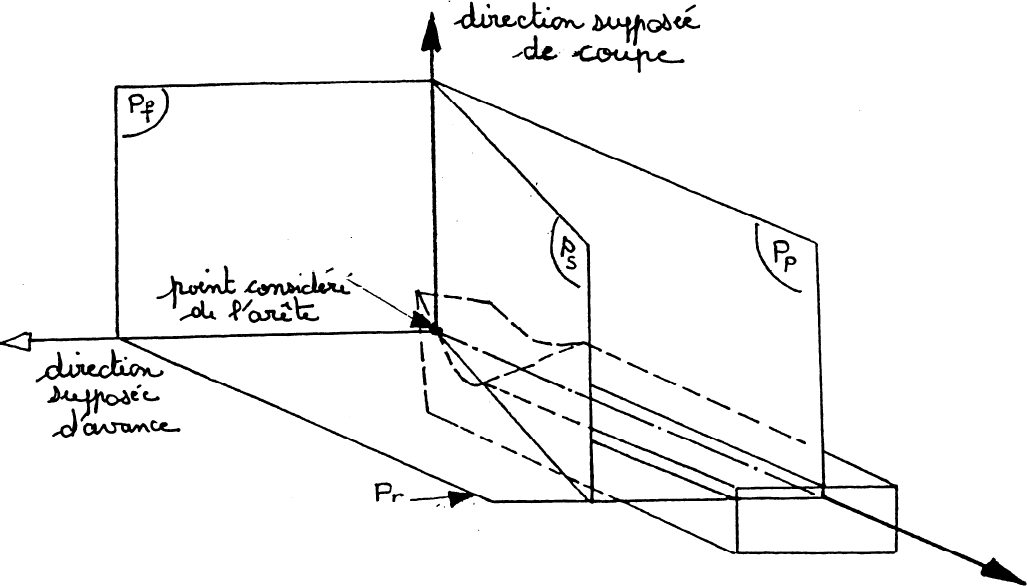 direction supposée
de coupe
Pf
Ps
Pp
point considéré
de l'arête
direction
supposée
d'avance
Pr